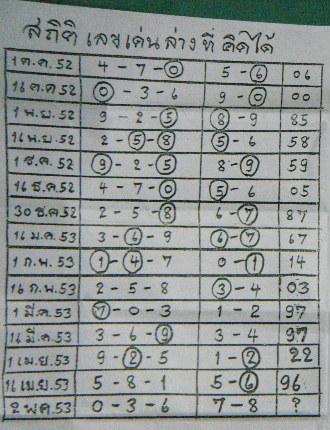 สถิติ เลขเด่นล่างที่ คิดได้
1 ต.ค. 52 4 - 7 - 0 5 - 6 06
16 ต.ค 52 0 - 3 - 6 9 - 0 00
1 พ.ย. 52 9 - 2 - 5 8 - 9 85
16 พ.ย. 52 2 - 5 - 8 5 - 6 58
1 ธ.ค. 52 9 - 2 - 5 8 - 9 59
16 ธ.ค. 52 4 - 7 - 0 5 - 6 05
30 ธ.ค 52 2 - 5 - 8 6 - 7 87
16 ม.ค. 53 3 - 6 - 9 6 - 7 67
1 ก.พ. 53 1 - 4 - 7 0 - 1 14
16 ก.พ. 53 2 - 5 - 8 3 - 4 03
1 มี.ค. 53 7 - 0 - 3 1 - 2 97
16 มี.ค. 53 3 - 6 - 9 3 - 4 97
1 เม.ย. 53 9 - 2 - 5 1 - 2 22
16 เม.ย. 53 5 - 8 - 1 5 - 6 96
2 พ.ค. 53 0 - 3 - 6 7 - 8 ?